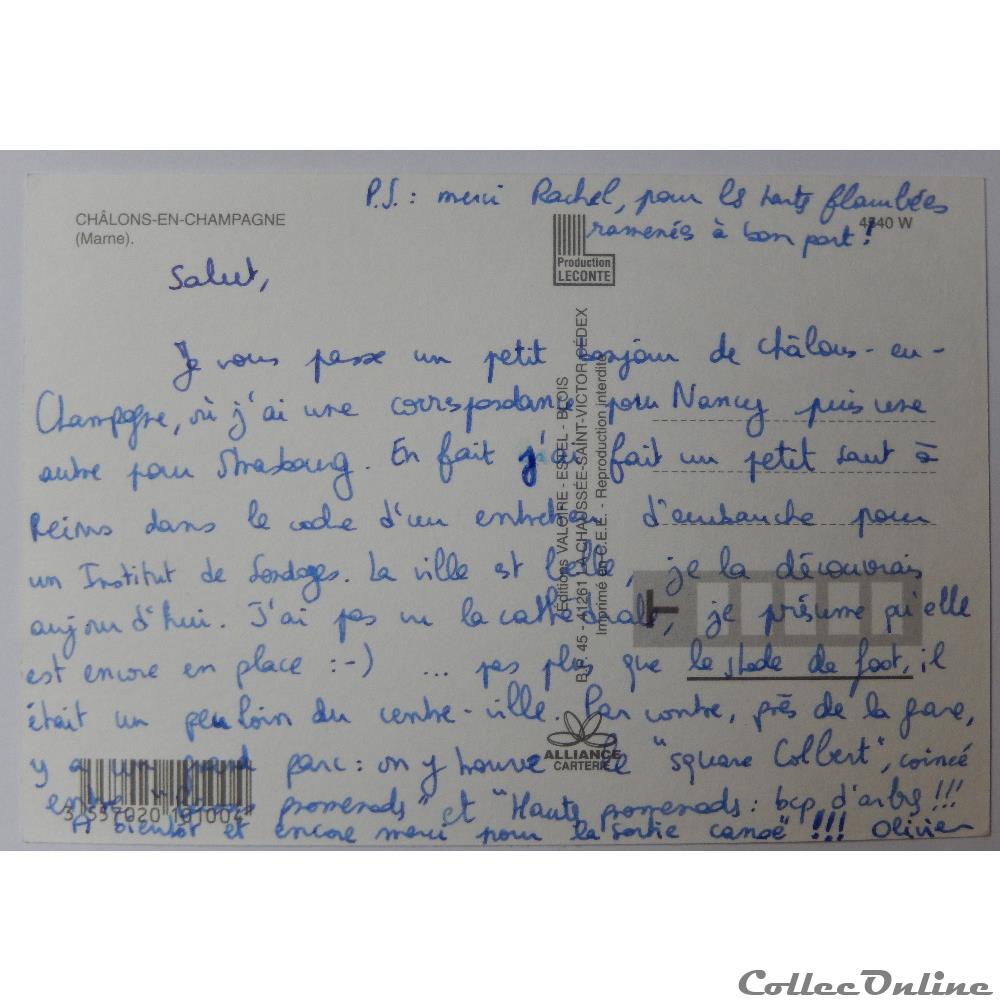 P.S.: merci Rachel, pour ls tarts flambées
ramenés à bon port!
CHÂLONS-EN-CHAMPAGNE
(Marne).
4340 W
Production
LECONTE
Salut,
Je vous passe un petit bonjour de Châlons-en-
Champagne, où j'ai une correspondance pour Nancy puis une
autre pour Strasbourg. En fait j'ai fait un petit saut à
Reims dans le cadre d'un entretien d'embauche pour
un Institut de Sondages. La ville est belle, je la découvrais
aujourd'hui. J'ai pas vu la cathédrale, je présume qu'elle
est encore en place :-) ... pas plus que le stade de foot, il
était un peu loin du centre-ville. Par contre, près de la gare,
y a un grand parc: on y trouve le "square Colbert", coincé
entre promenads" et "Hauts promenads: bcp d'arbrs!!!
A bientôt et encore merci pour la sortie canoë"!!! Olivier
Éditions VALOIRE - ESTEL - BLOIS
B.P. 45 - 41261 LA CHAUSSÉE-SAINT-VICTOR CÉDEX
Imprimé en C.E.E. - Reproduction interdite
ALLIANCE
CARTERIE
3 557020 101004
CollecOnline